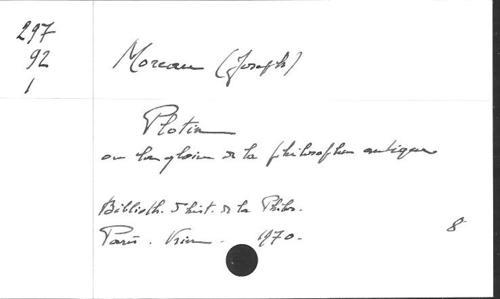 297
92
1
Moreau (Joseph)
Plotin
ou la gloire de la philosophie antique
Biblioth. d'hist. de la Philos.
Paris. Vrin. 1970.
8